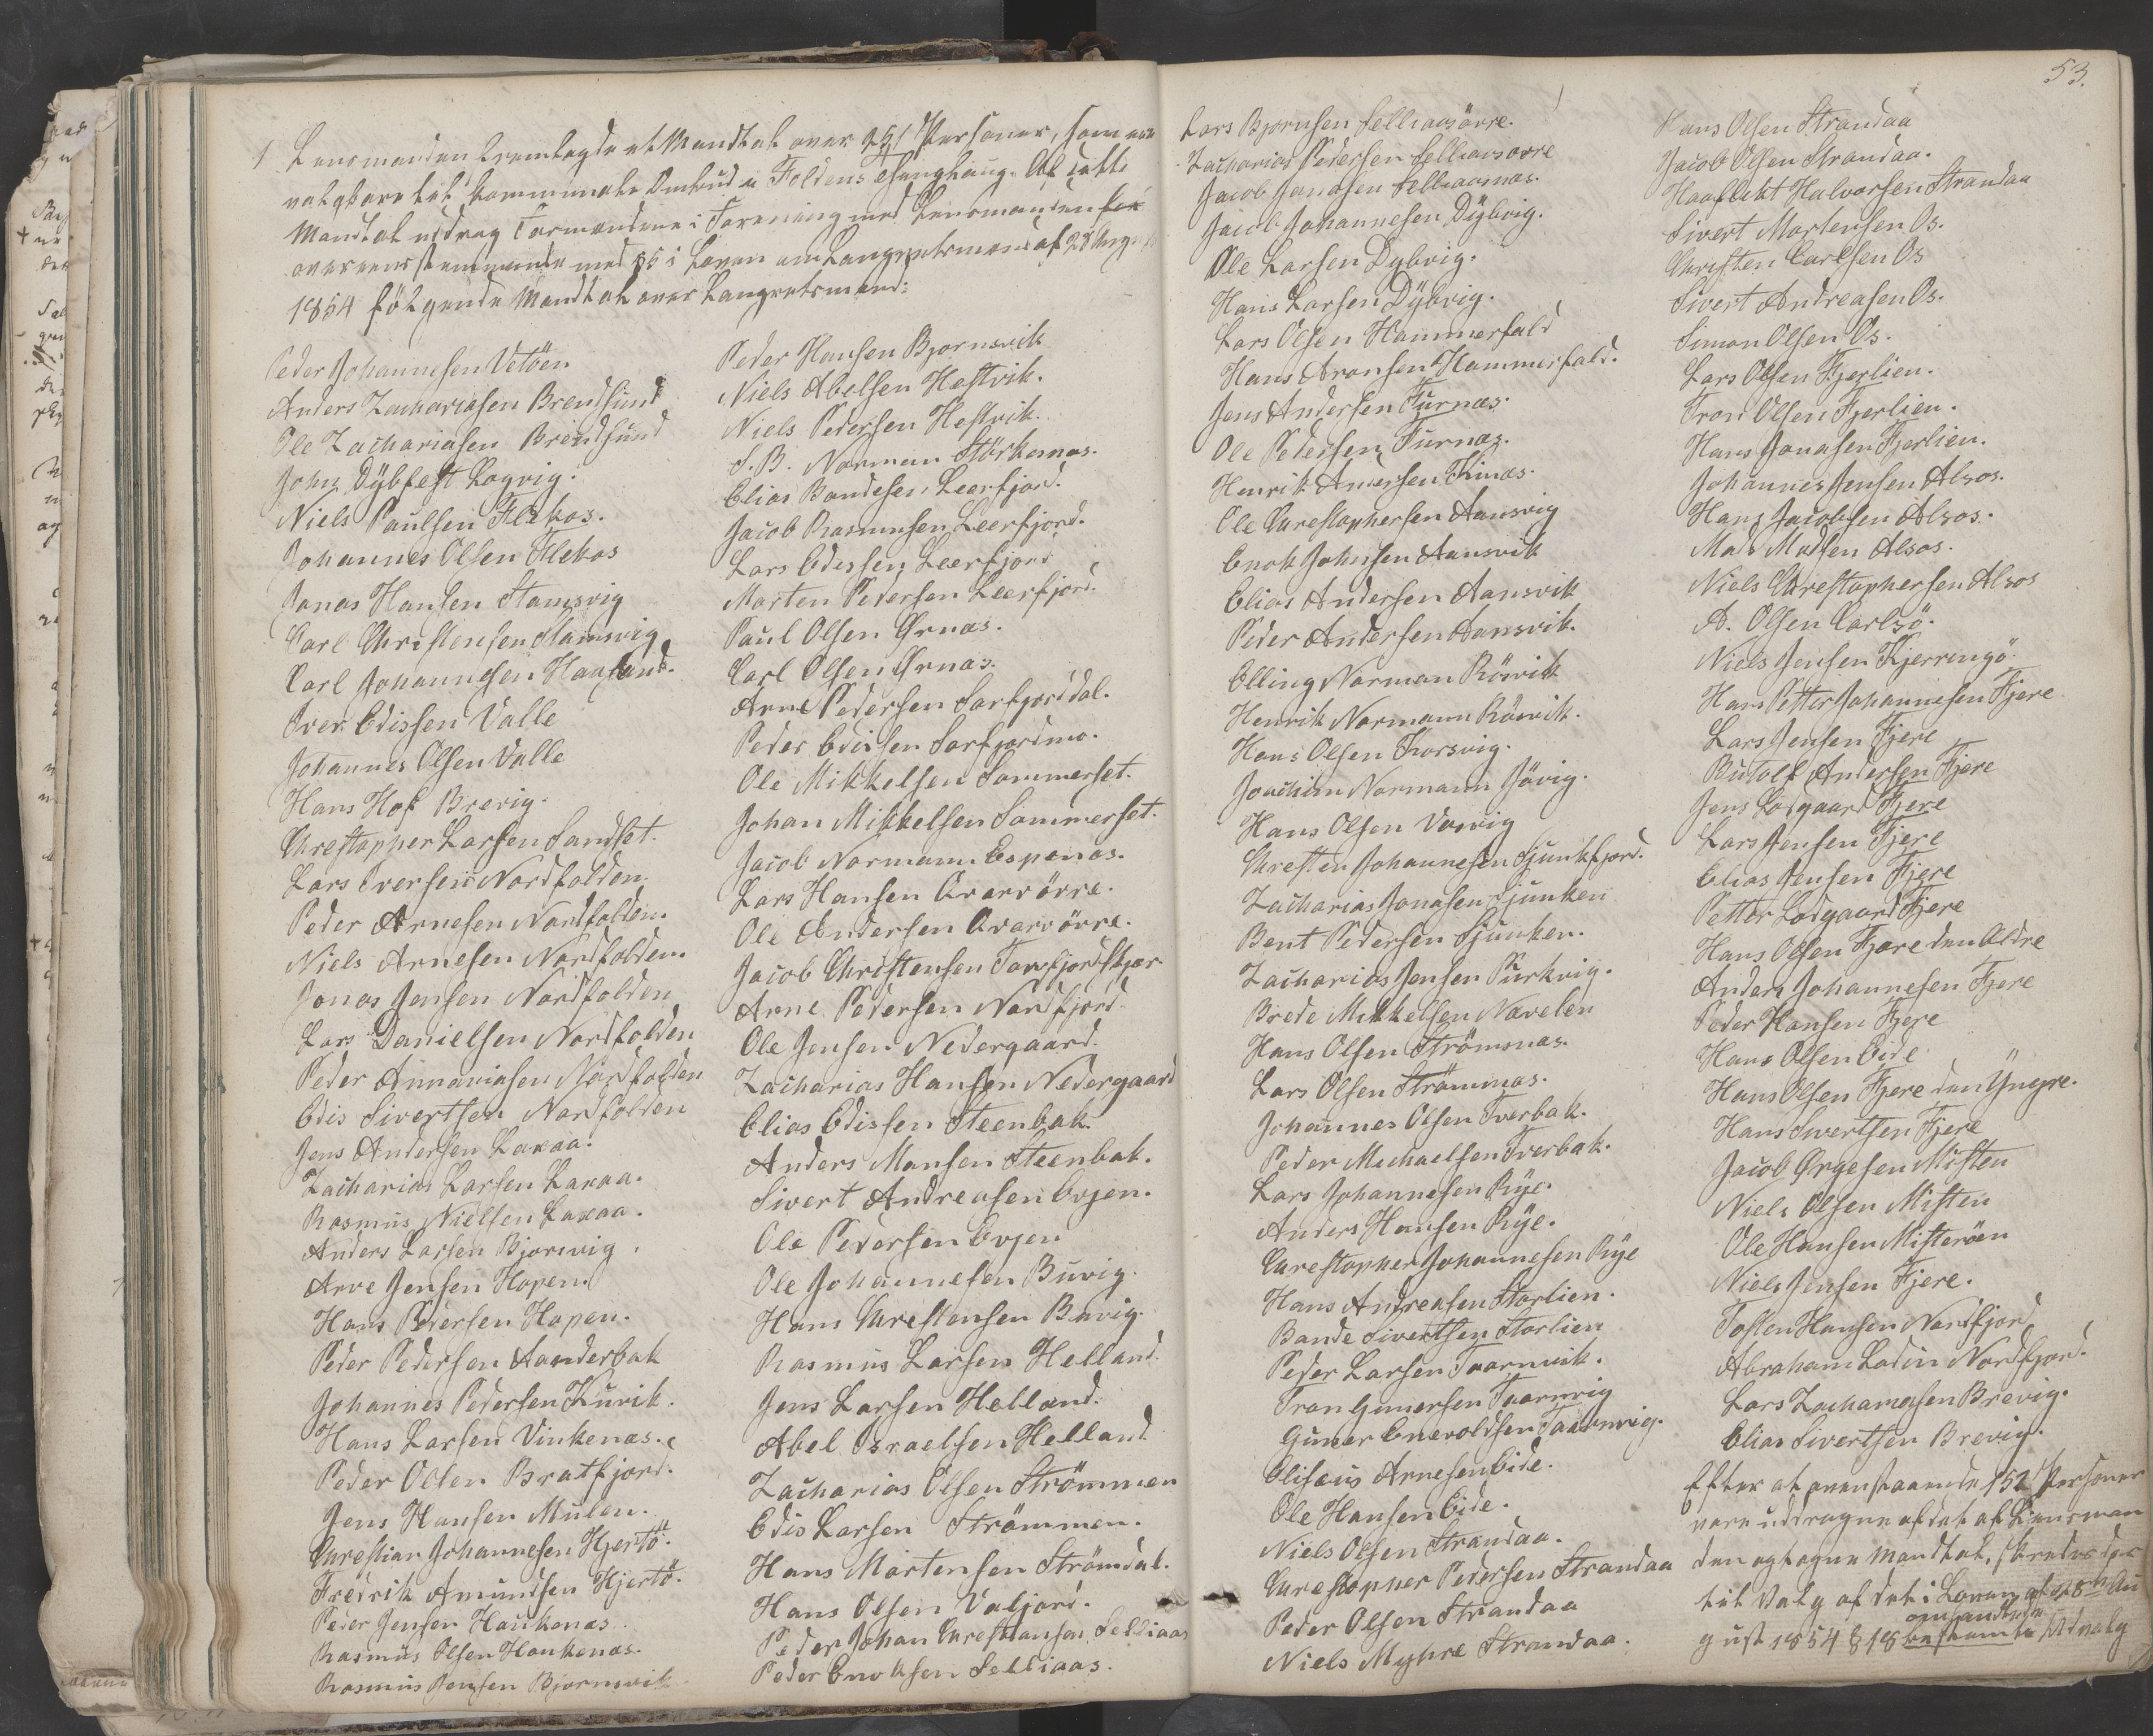 1 Lensmanden fremlagde et Mandtal over 251 Personer, som ere
valgbare til kommunale Ombud i Foldens Thinglaug. Af dette
Mandtal uddrog Formændene i Forening med Lensmanden
overeensstemmende med §5 i Loven om Laugretsmænd af 28 Aug
1854 følgende Mandtal over Laugretsmænd:
Peder Johannesen Vetöen
Anders Zachariasen Brendsund
Ole Zachariasen Brendsund
John Dÿbfest Løgvig.
Niels Paulsen Flekos.
Johannes Olsen Flekos
Jonas Hansen Stamsvig
Carl Christensen Stamsvig
Carl Johannesen Haaland.
Iver Edissen Valle
Johannes Olsen Valle
Hans Hof Brevig.
Christopher Larsen Sandset.
Lars Iversen Nordfolden.
Peder Arnesen Nordfolden.
Niels Arnesen Nordfolden.
Jonas Jensen Nordfolden
Lars Danielsen Nordfolden
Peder Annaniasen Nordfolden
Edis Sivertsen Nordfolden
Jens Andersen Laxaa.
Zacharias Larsen Laxaa.
Rasmus Nielsen Laxaa.
Anders Larsen Bjornvig.
Arve Jensen Hopen.
Hans Pedersen Hopen.
Peder Pedersen Aanderbak
Johannes Pedersen Kuvik.
Hans Larsen Vinkenæs.
Peder Olsen Bratfjord.
Jens Hansen Mulen.
Christian Johannesen Hjertö.
Fredrik Amundsen Hjertö.
Peder Jensen Haukenæs
Rasmus Olsen Haukenæs.
Rasmus Jensen Bjornsvik
Peder Hansen Bjornsvik
Niels Abelsen Hestvik.
Niels Pedersen Hestvik.
S. B. Norman Störkesnæs.
Elias Bandesen Leerfjord.
Jacob Rasmusen Leerfjord.
Lars Edissen Leerfjord
Morten Pedersen Leerfjord.
Paul Olsen Ørnæs.
Carl Olsen Ørnæs.
Arne Pedersen Sørfjorddal.
Peder Edissen Sørfjordmo.
Ole Mikkelsen Sommerset.
Johan Mikkelsen Sommerset.
Jacob Normann Espenæs.
Lars Hansen Qvarvövre.
Ole Andersen Qvarvövre.
Jacob Christensen Tørrfjordskjær
Arne Pedersen Nordfjord.
Ole Jensen Nedergaard.
Zacharias Hansen Nedergaard
Elias Edissen Steenbak.
Anders Monsen Steenbak.
Sivert Andreasen Evjen.
Ole Pedersen Evjen
Ole Johannesen Buvig.
Hans Christensen Buvig.
Rasmus Larsen Helland.
Jens Larsen Helland.
Abel Israelsen Helland
Zacharias Olsen Strömmen
Edis Larsen Strömmen.
Hans Mortensen Strömdal.
Hans Olsen Valjord.
Peder Johan Christiansen Selliaas
Peder Enoksen Selliaas.
53.
Lars Bjornsen Selliaasövre.
Zacharias Pedersen Selliaasovre
Jacob Jonasen Selliaasnæs.
Jacob Johannesen Dÿbvig.
Ole Larsen Dÿbvig.
Hans Larsen Dÿbvig.
Lars Olsen Hammerfald
Hans Aronsen Hammerfald.
Jens Andersen Furnæs.
Ole Pedersen Furnæs.
Henrik Andersen Kinæs.
Ole Christophersen Aansvig
Enok Johnsen Aansvik
Elias Andersen Aansvik
Peder Andersen Aansvik.
Elling Norman Rösvik
Henrik Normann Rösvik.
Hans Olsen Korsvig.
Joachim Normann Jövig.
Hans Olsen Vasvig
Christen Johannesen Sjunkfjord.
Zacharias Jonasen Sjunken
Bent Pedersen Sjunken.
Zacharias Jensen Purkvig.
Brede Mikkelsen Nævelen
Hans Olsen Strömsnæs.
Lars Olsen Strömsnæs.
Johannes Olsen Tverbak.
Peder Michaelsen Tverbak.
Lars Johannesen Rÿe.
Anders Hansen Rÿe.
Christopher Johannesen Rÿe
Hans Andreasen Storlien.
Bande Sivertsen Storlien
Peder Larsen Taarnvik.
Tron Gunersen Taarnvig
Guner Enevoldsen Taarnvig.
Elisæus Arnesen Eide.
Ole Hansen Eide.
Niels Olsen Strandaa.
Christopher Pedersen Strandaa
Peder Olsen Strandaa
Niels Myhre Strandaa.
Hans Olsen Strandaa
Jacob Olsen Strandaa.
Haaflekt Halvorsen Strandaa
Sivert Mortensen Os.
Christen Carlsen Os
Sivert Andreasen Os.
Simon Olsen Os.
Lars Olsen Fjerlien.
Tron Olsen Fjerlien.
Hans Jonasen Fjerlien.
Johannes Jensen Alsos.
Hans Jacobsen Alsos.
Mads Madsen Alsos.
Niels Christophersen Alsos
A. Olsen Carlsö.
Niels Jensen Kjerringö.
Hans Petter Johannesen Fjere
Lars Jensen Fjere
Butolf Andersen Fjere
Jens Lodgaard Fjere
Lars Jensen Fjere
Elias Jensen Fjere
Petter Lodgaard Fjere
Hans Olsen Fjære den Ældre
Anders Johannesen Fjere
Peder Hansen Fjere
Hans Olsen Eide
Hans Olsen Fjere den Yngre.
Hans Sivertsen Fjere
Jacob Ørgesen Misten
Niels Olsen Misten
Ole Hansen Misteröen
Niels Jensen Fjere.
Tosten Hansen Nordfjord
Abraham Lodin Nordfjord.
Lars Zachariasen Brevig.
Elias Sivertsen Brevig.
Efter at ovenstaaende 152 Personer
vare uddragne af det af Lensman
den optagne Mandtal, skredes der
til Valg af det i Loven af 28de Au
omhandlede
gust 1854 § 18 bestemte Udvalg